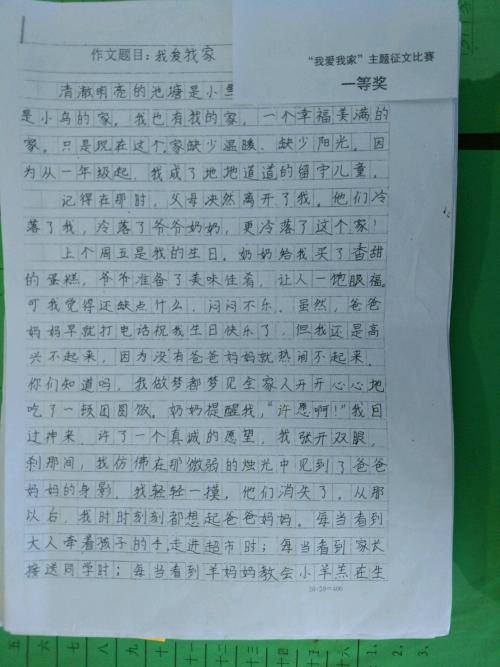 作文题目：我爱我家
“我爱我家”主题征文比赛
一等奖
清澈明亮的池塘是小
是小鸟的家。我也有我的家，一个幸福美满的
家。只是现在这个家缺少温暖、缺少阳光。因
为从一年级起，我成了地地道道的留守儿童。
记得在那时，父母决然离开了我。他们冷
落了我，冷落了爷爷奶奶，更冷落了这个家！
上个周五是我的生日。奶奶给我买了香甜
的蛋糕，爷爷准备了美味佳肴，让人一饱眼福。
可我觉得还缺点什么，闷闷不乐。虽然，爸爸
妈妈早就打电话祝我生日快乐了，但我还是高
兴不起来，因为没有爸爸妈妈就热闹不起来。
你们知道吗，我做梦都梦见全家人开开心心地
吃了一顿团圆饭。奶奶提醒我，“许愿啊！”我回
过神来，许了一个真诚的愿望，我张开双眼，
刹那间，我仿佛在那微弱的烛光中见到了爸爸
妈妈的身影，我轻轻一摸，他们消失了。从那
以后，我时时刻刻都想起爸爸妈妈。每当看到
大人牵着孩子的手走进超市时；每当看到家长
接送同学时；每当看到羊妈妈教会小羊羔在生
20×20=400
五
六
七
八
九
十
十一
十二
十三
十四
1、
2、
3、